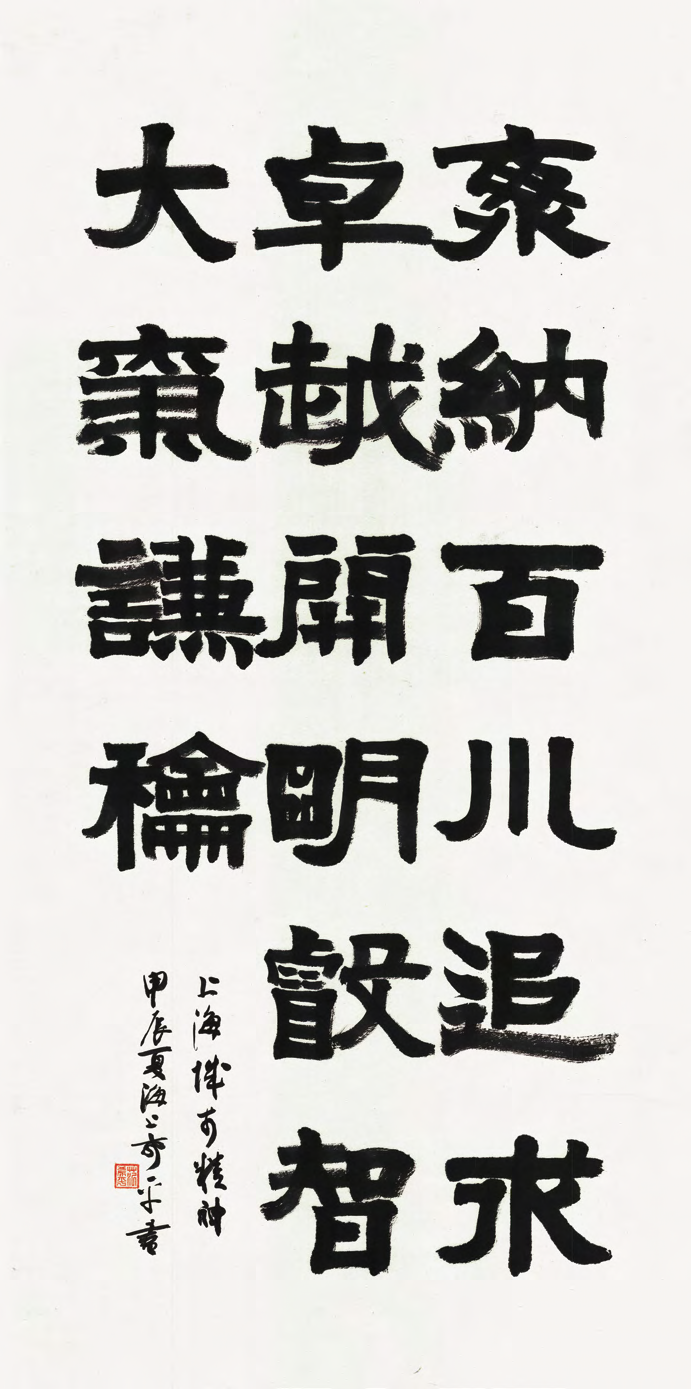 海納百川追求
卓越開明叡智
大氣謙龢
上海城市精神
甲辰夏海上平書